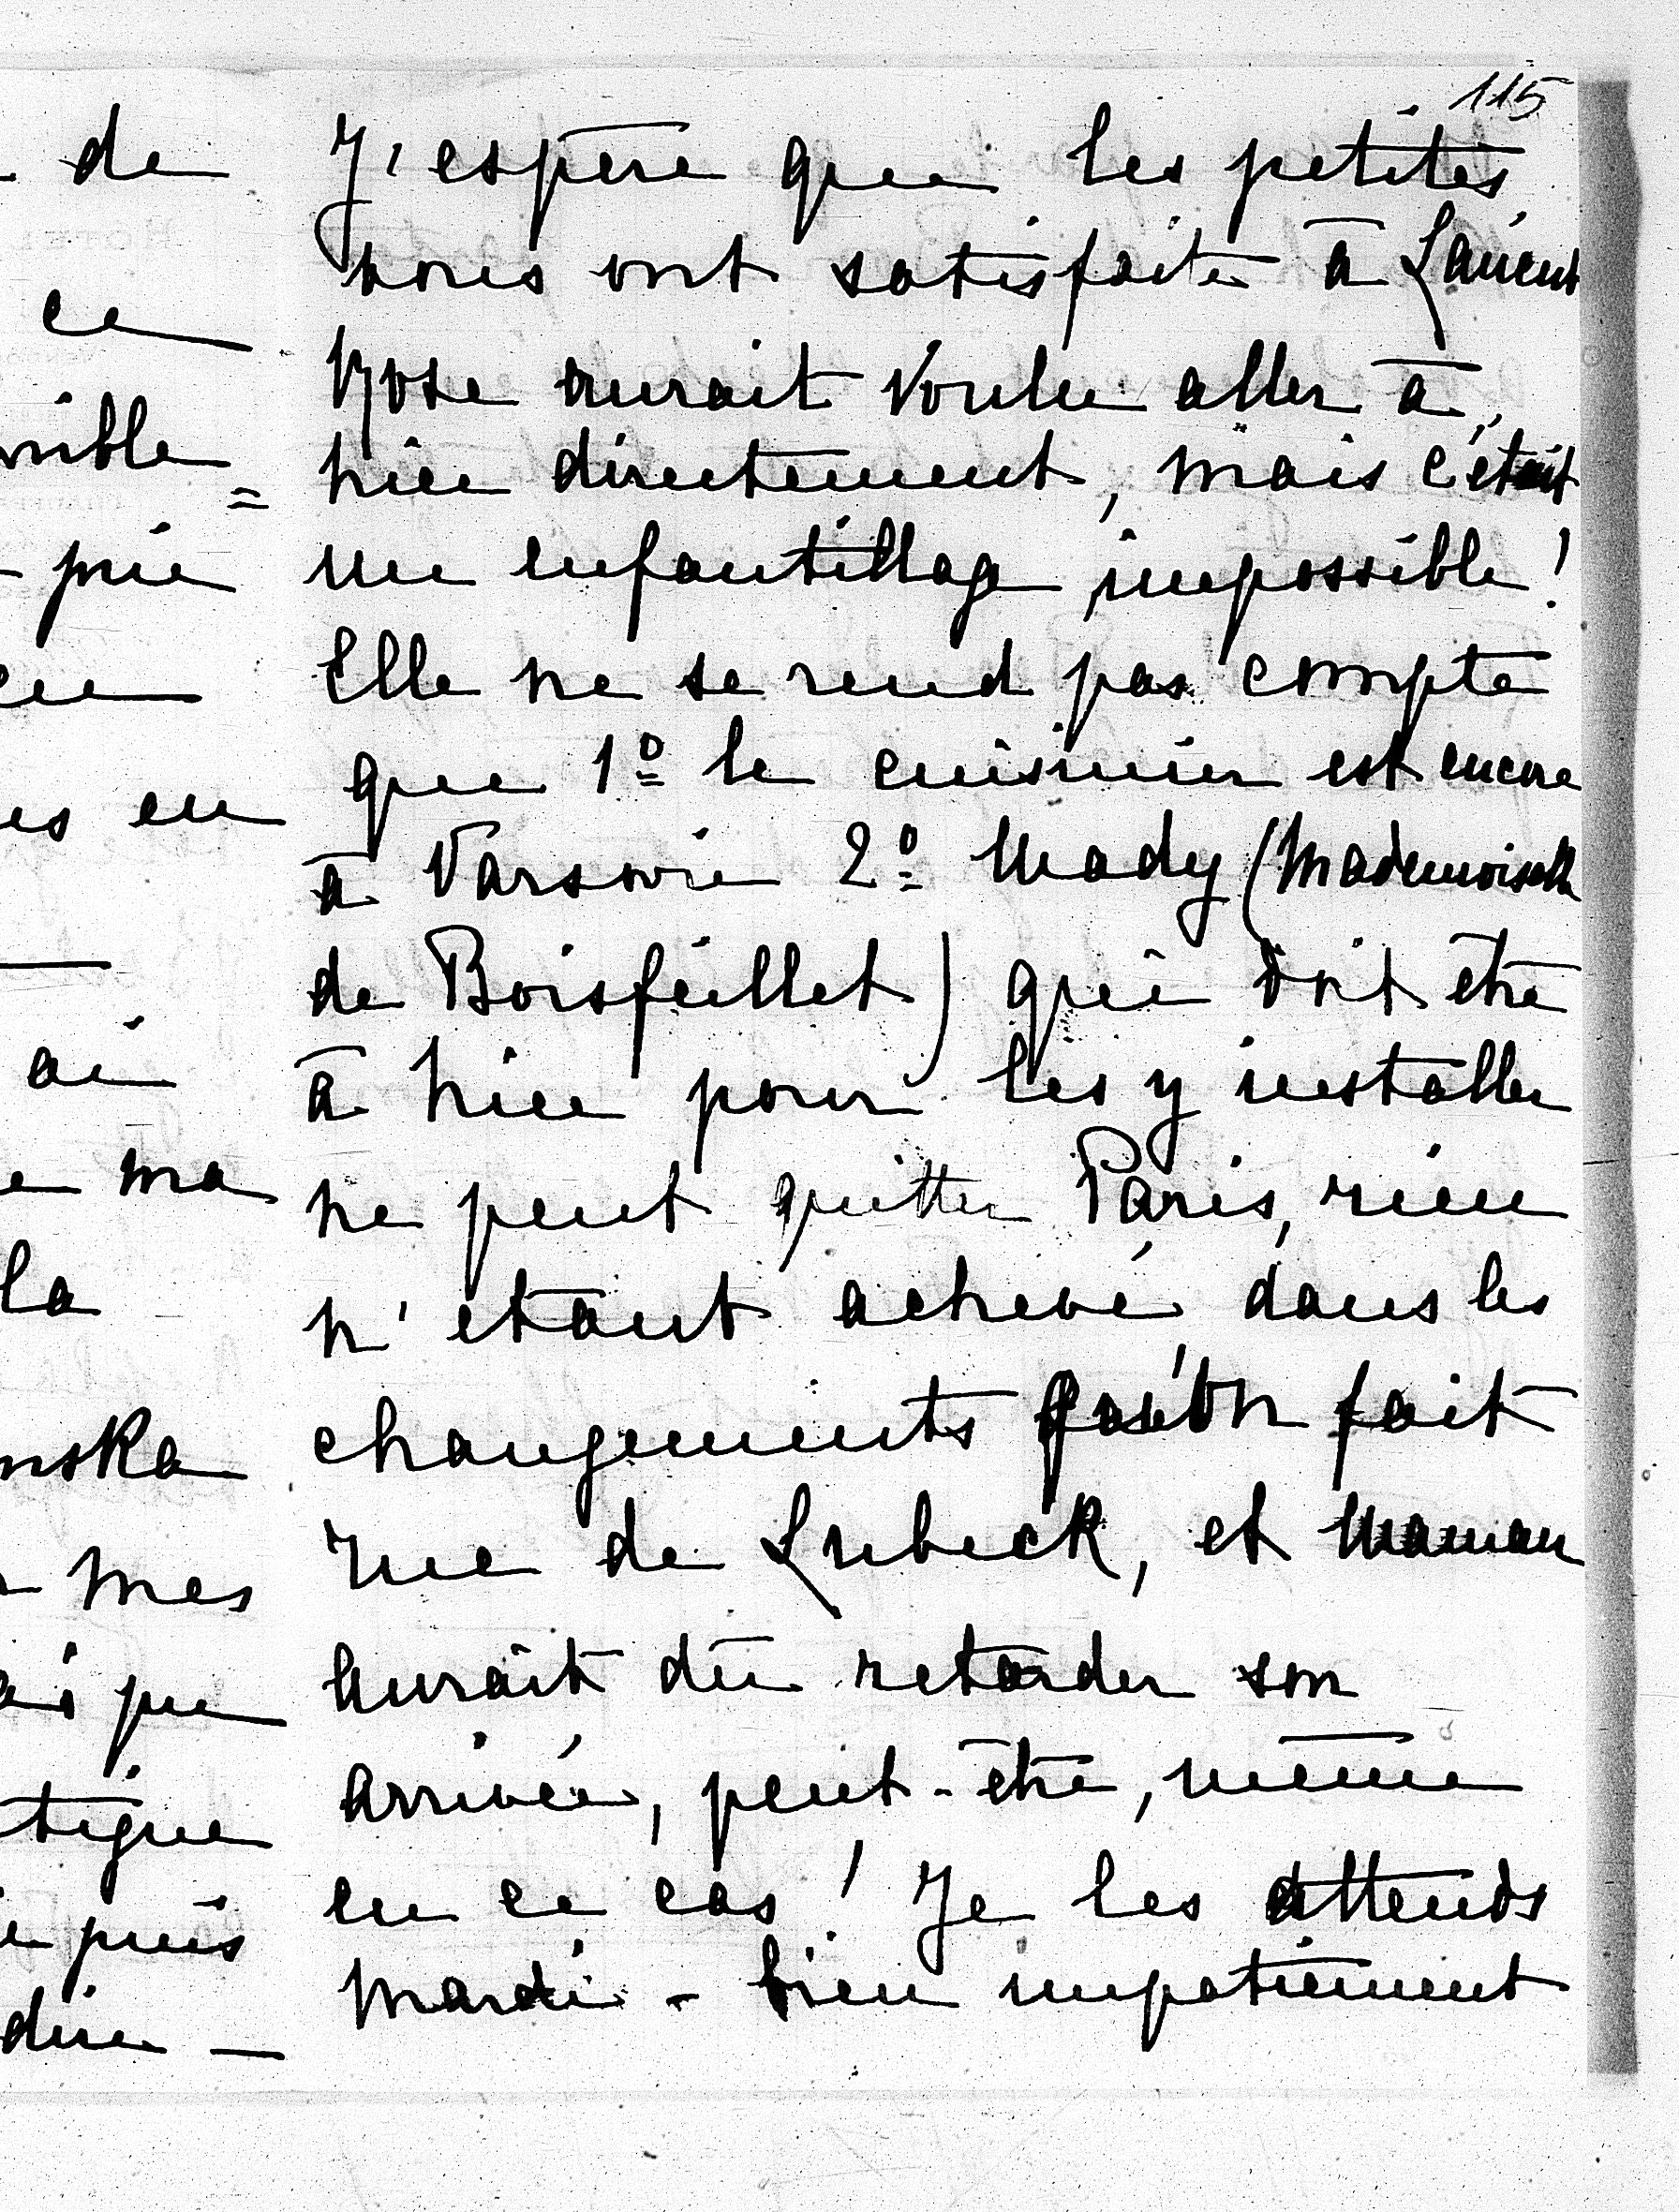 115
de
ce
nible=
prie
en
es en
ai
ma
la
nska
mes
ai pu
tigue
puis
dire —
J'espère que les petites
vous ont satisfaite à Láncut
Rose aurait voulu aller à
Nice directement, mais c'était
un enfantillage impossible!
Elle ne se rend pas compte
que 1º le cuisinier est encore
à Varsovie 2º Mady (Mademoiselle
de Boisfeillet) qui doit être
à Nice pour les y installer
ne peut quitter Paris, rien
n'étant achevé dans les
changements qu'on fait
rue de Lubeck, et Maman
aurait dû retarder son
arrivée, peut-être, même
en ce cas! Je les attends
mardi - bien impatiemment